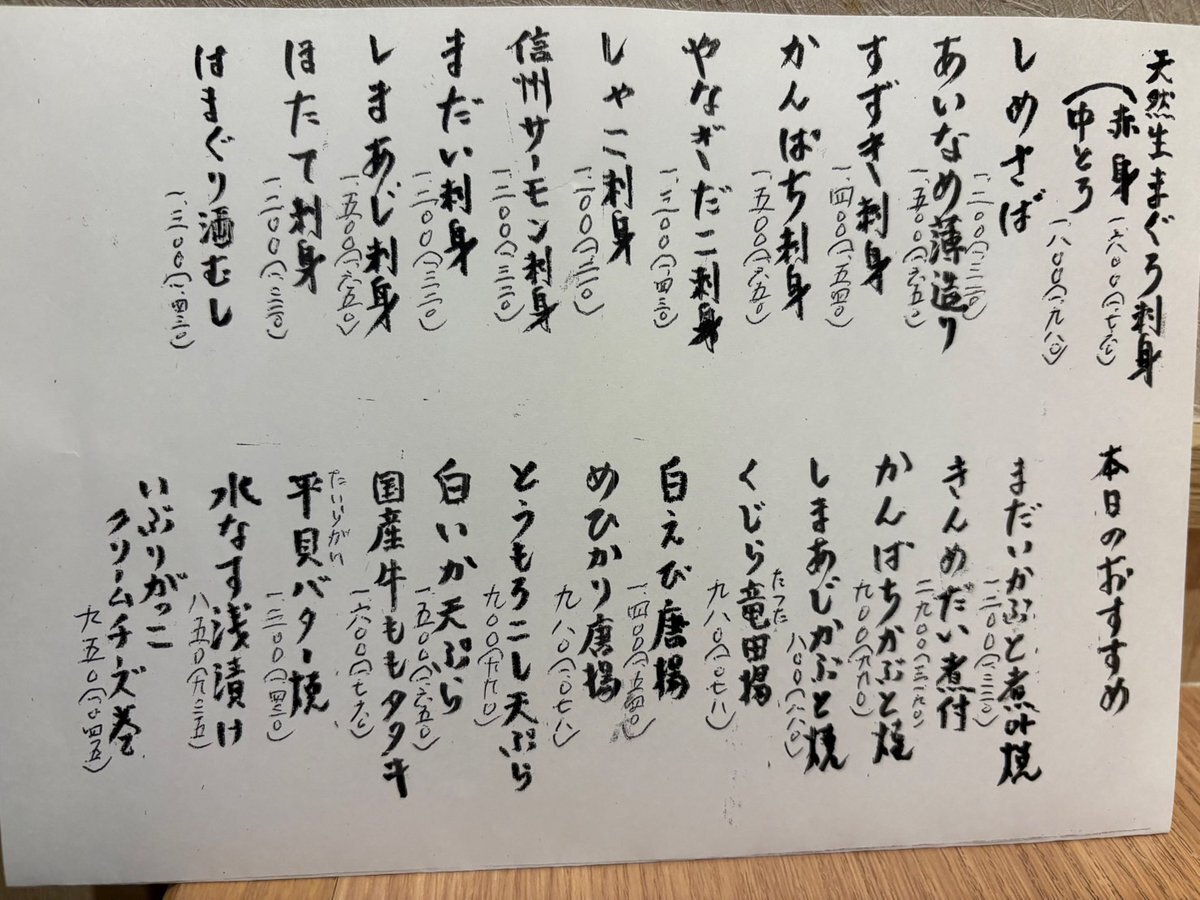 天然生まぐろ刺身
赤身
一、六〇〇(一、七六〇)
中とろ
一、八〇〇(一、九八〇)
しめさば
一、二〇〇(一、三二〇)
あいなめ薄造り
一、五〇〇(一、六五〇)
すずき刺身
一、四〇〇(一、五四〇)
かんぱち刺身
一、五〇〇(一、六五〇)
やなぎだこ刺身
一、三〇〇(一、四三〇)
しゃこ刺身
一、二〇〇(一、三二〇)
信州サーモン刺身
一、二〇〇(一、三二〇)
まだい刺身
一、二〇〇(一、三二〇)
しまあじ刺身
一、五〇〇(一、六五〇)
ほたて刺身
一、二〇〇(一、三二〇)
はまぐり酒むし
一、三〇〇(一、四三〇)
本日のおすすめ
まだいかぶと煮or焼
一、二〇〇(一、三二〇)
きんめだい煮付
二、九〇〇(三、一九〇)
かんぱちかぶと焼
九〇〇(九九〇)
しまあじかぶと焼
八〇〇(八八〇)
くじら竜田揚
たつた
九八〇(一、〇七八)
白えび唐揚
一、四〇〇(一、五四〇)
めひかり唐揚
九八〇(一、〇七八)
とうもろこし天ぷら
九〇〇(九九〇)
白いか天ぷら
一、五〇〇(一、六五〇)
国産牛ももタタキ
一、六〇〇(一、七六〇)
平貝バター焼
たいらがい
一、三〇〇(一、四三〇)
水なす浅漬け
八五〇(九三五)
いぶりがっこ
クリームチーズ巻
九五〇(一、〇四五)